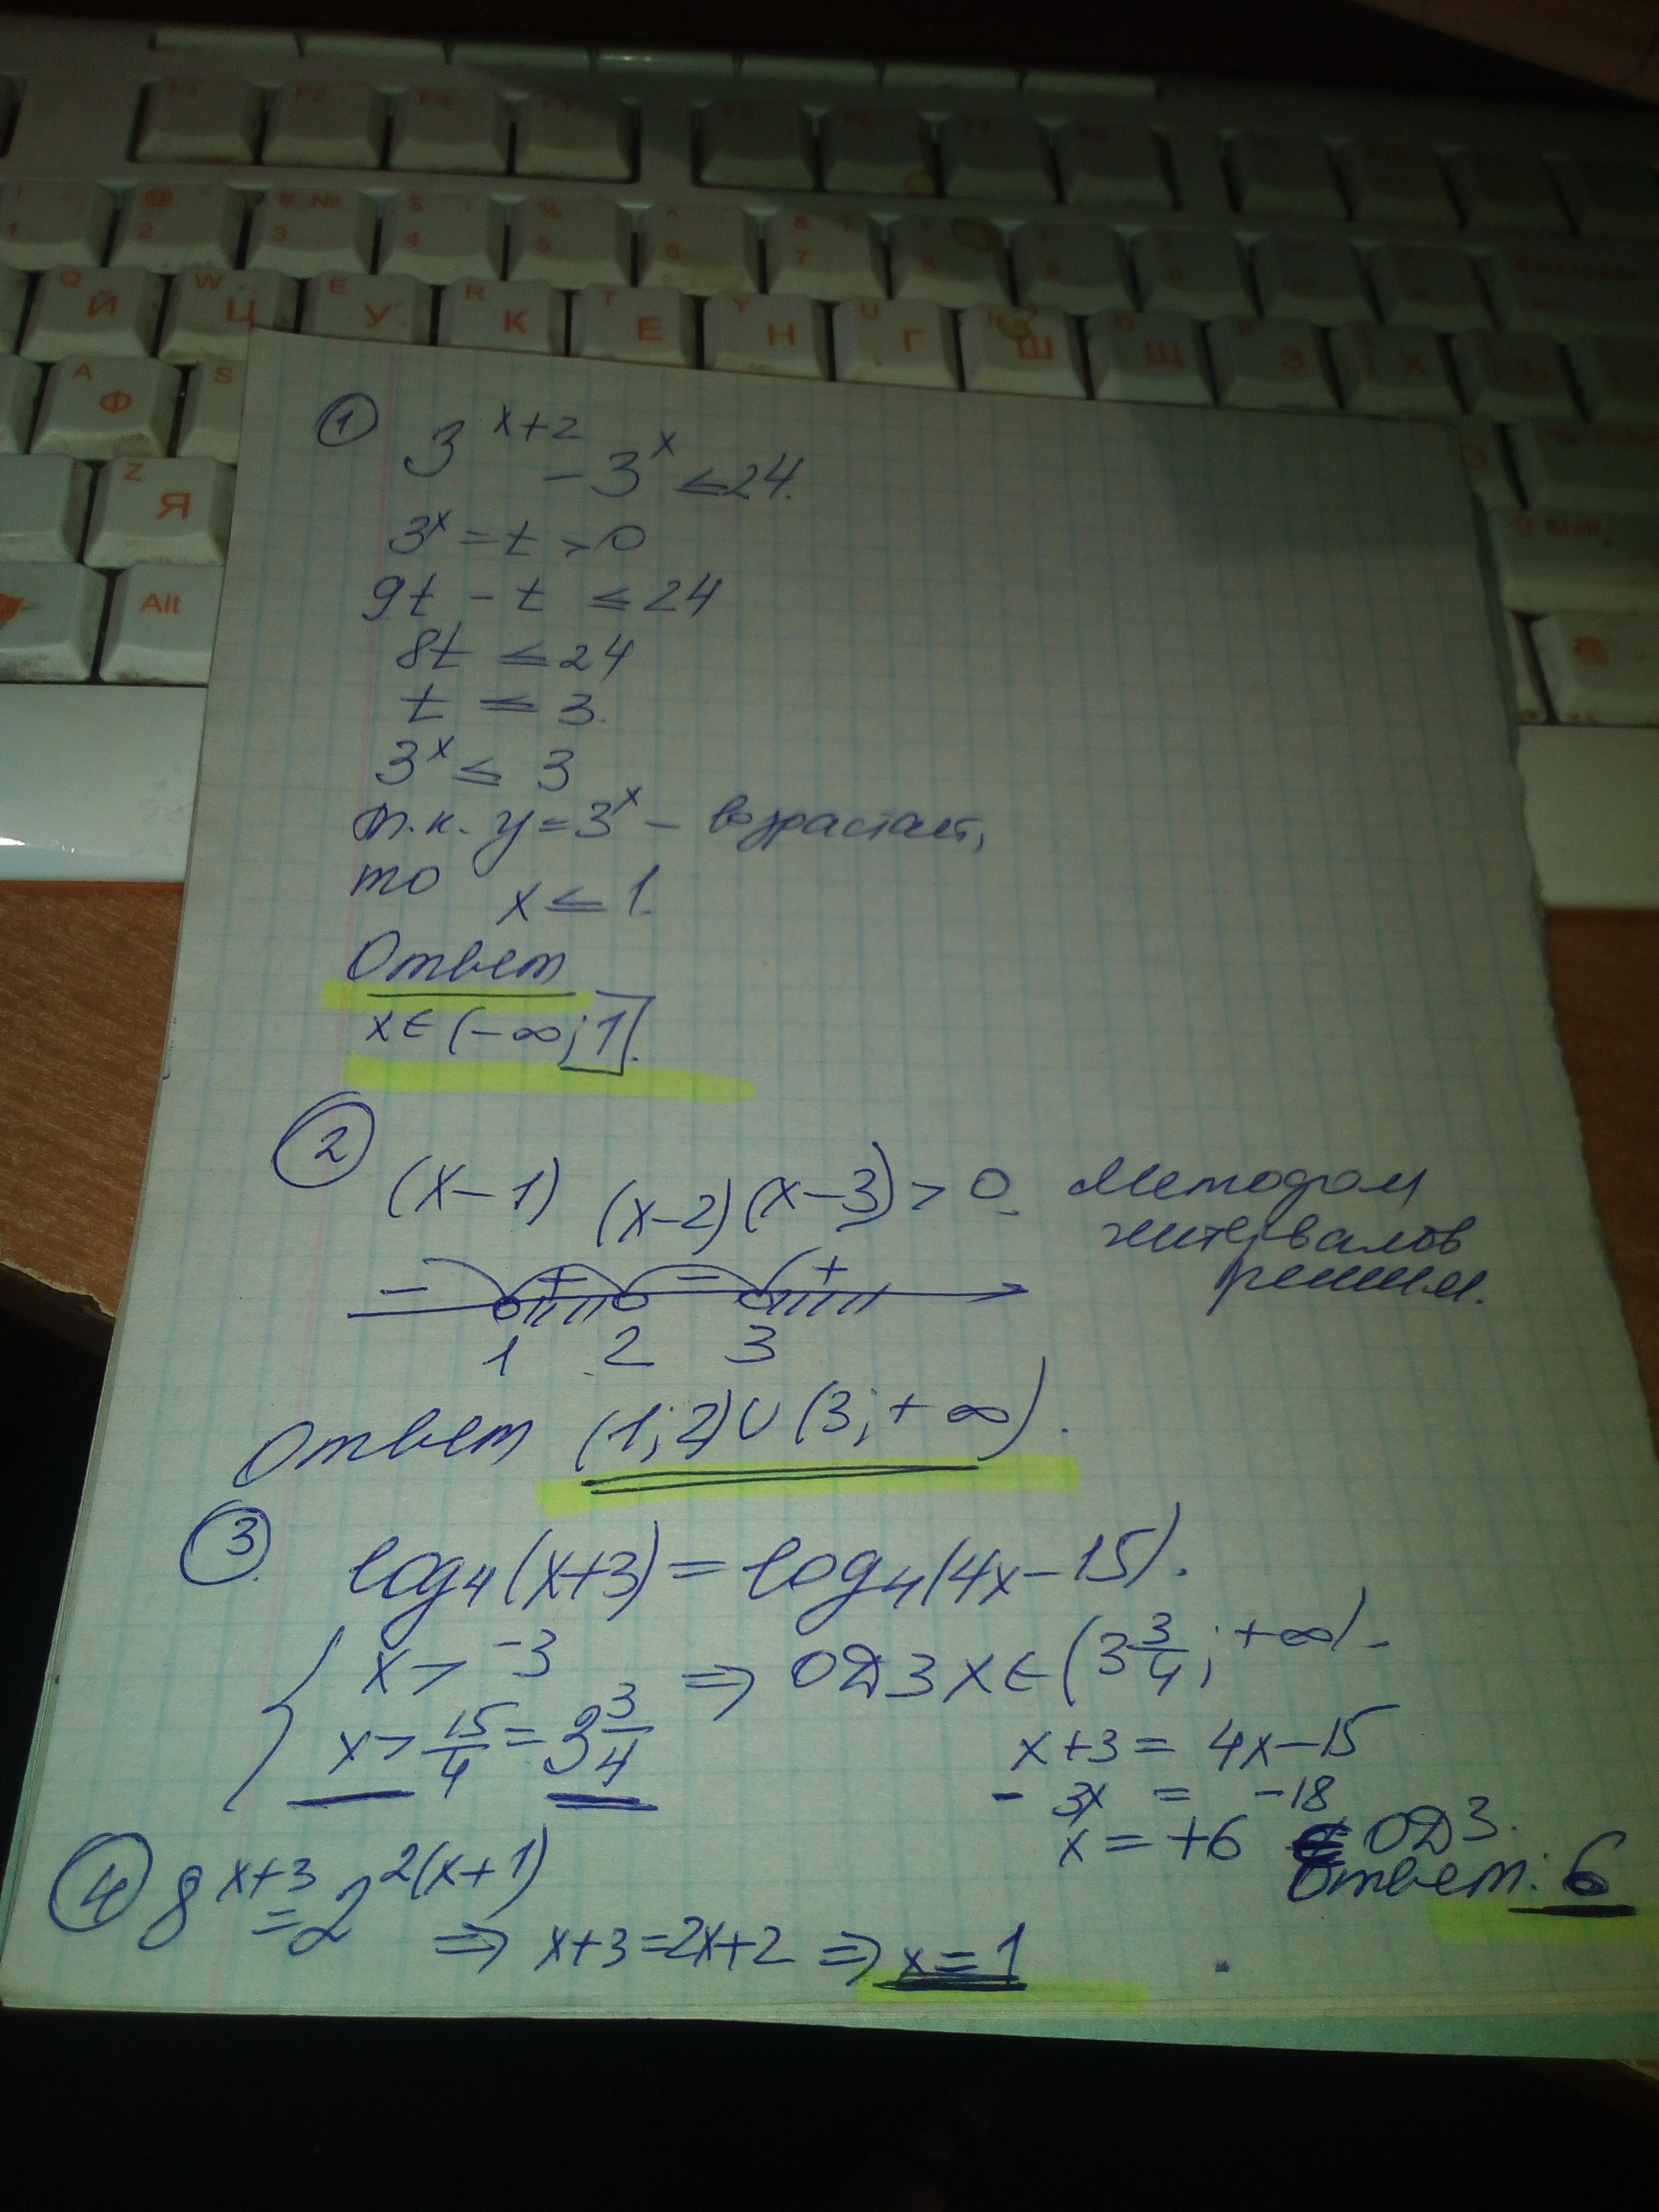 F1 F2 F3 F4 F5 F6 F7 F8
! 1 @ " 2 # № 3 $ ; 4 % 5 ^ 6 & 7
Q Й W Ц E У R К T Е Y Н U Г I Ш O Щ P З Х Ъ
A Ф S
Z Я
Alt
① 3^{x+2} - 3^x ≤ 24.
3^x = t > 0
9t - t ≤ 24
8t ≤ 24
t ≤ 3.
3^x ≤ 3
т.к. y = 3^x - возрастает,
то x ≤ 1.
Ответ
x ∈ (-∞; 1].
② (x-1) (x-2)(x-3) > 0. Методом
интервалов
решим.
- + - +
1 2 3
Ответ (1; 2) ∪ (3; +∞).
③ log₄(x+3) = log₄(4x-15).
{ x > -3 ⇒ ОДЗ x ∈ (3 3/4; +∞).
x > 15/4 = 3 3/4
x+3 = 4x-15
- 3x = -18
x = +6 ∈ ОДЗ.
Ответ: 6
④ 8^{x+3} = 2^{2(x+1)} ⇒ x+3 = 2x+2 ⇒ x = 1